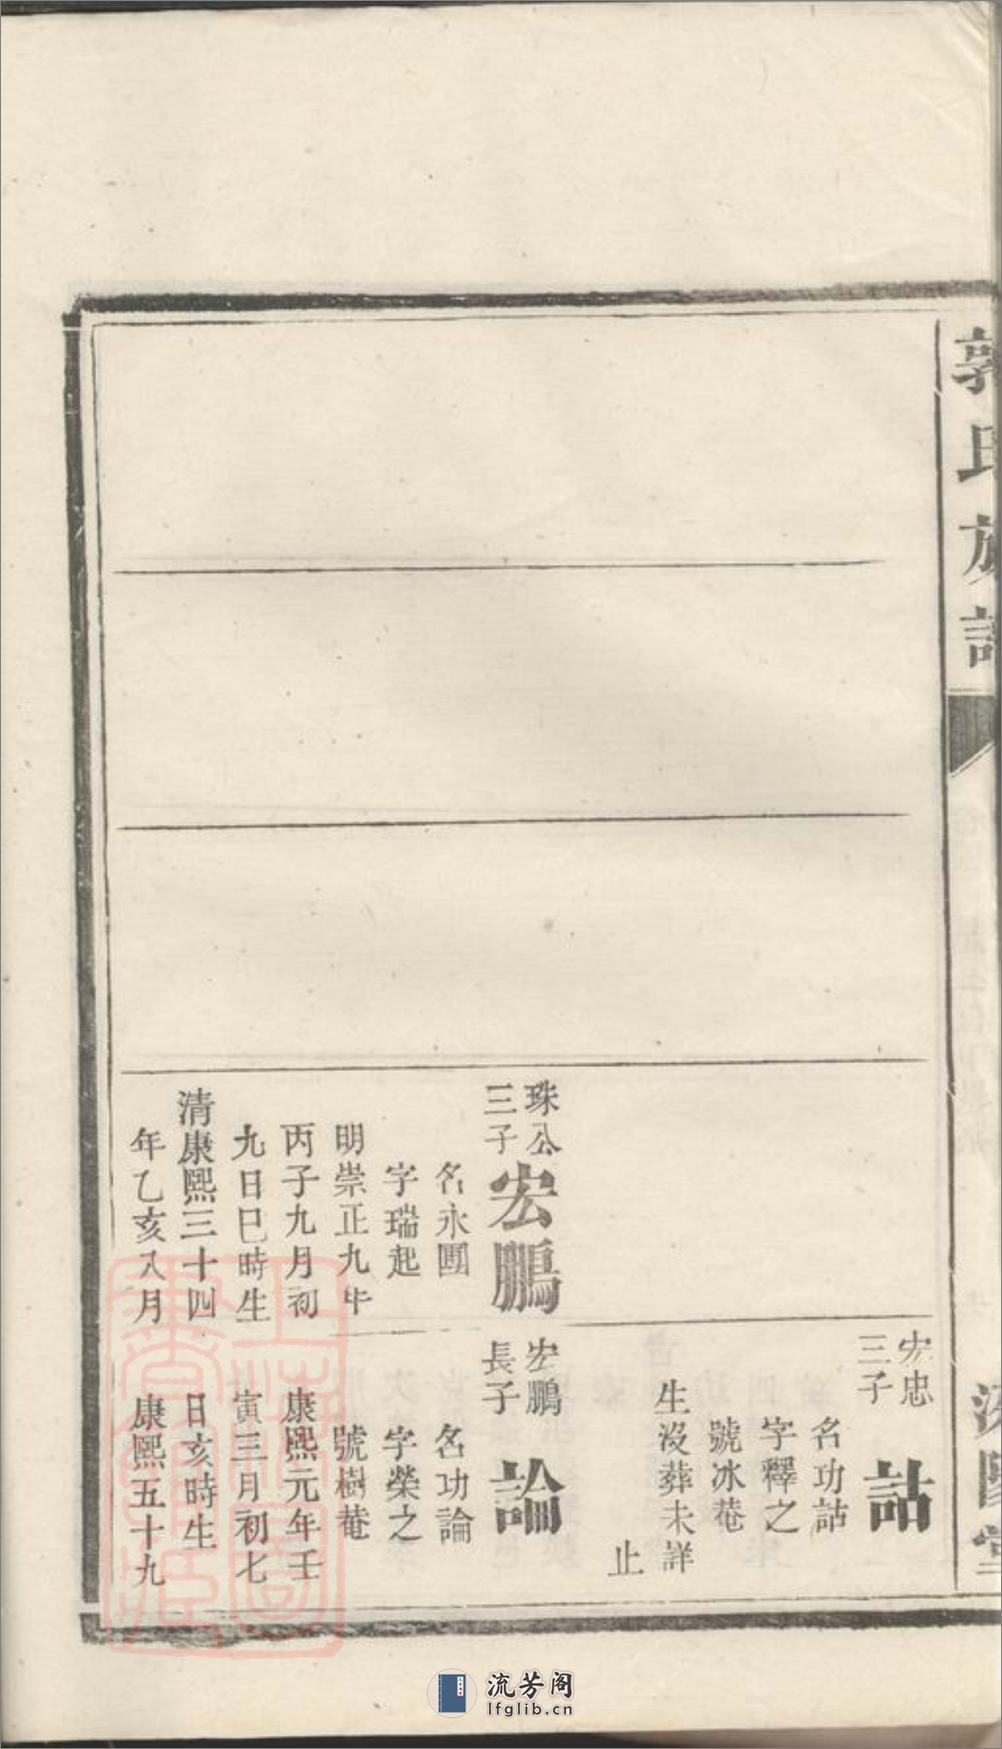 郭氏族譜
宏忠
三子
詁
名功詁
字釋之
號冰菴
生沒葬未詳
止
珠公
三子
宏鵬
名永圑
字瑞起
明崇正九年
丙子九月初
九日巳時生
清康熙三十四
年乙亥八月
宏鵬
長子
論
名功論
字榮之
號樹菴
康熙元年壬
寅三月初七
日亥時生
康熙五十九
流芳阁
lfglib.cn